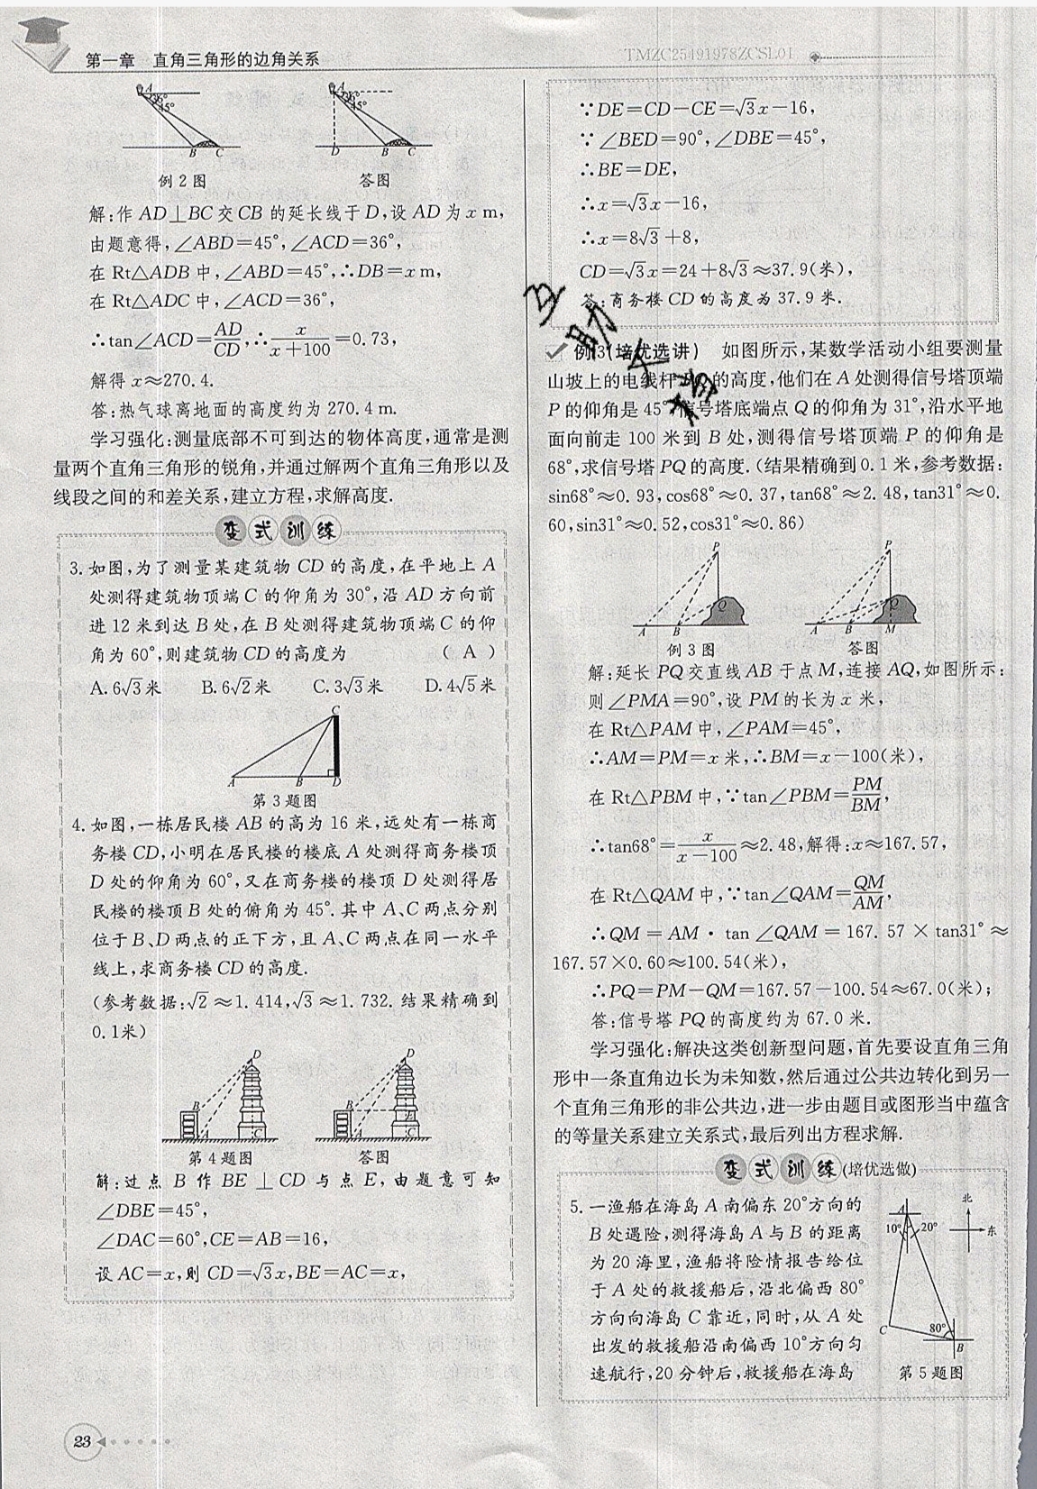 第一章 直角三角形的边角关系
TMZC25491978ZCSL01
A
36°
45°
B C
例2图
A
36°
45°
D B C
答图
解:作 AD⊥BC交CB 的延长线于D,设 AD为x m,
由题意得,∠ABD=45°,∠ACD=36°,
在 Rt△ADB 中,∠ABD=45°,∴DB=x m,
在 Rt△ADC 中,∠ACD=36°,
∴tan∠ACD=AD/CD,∴x/(x+100)=0.73,
解得 x≈270.4.
答:热气球离地面的高度约为 270.4 m.
学习强化:测量底部不可到达的物体高度,通常是测
量两个直角三角形的锐角,并通过解两个直角三角形以及
线段之间的和差关系,建立方程,求解高度.
变式训练
3. 如图,为了测量某建筑物 CD 的高度,在平地上 A
处测得建筑物顶端 C 的仰角为 30°,沿 AD 方向前
进 12 米到达 B 处,在 B 处测得建筑物顶端 C 的仰
角为 60°,则建筑物 CD 的高度为 ( A )
A. 6√3米 B. 6√2米 C. 3√3米 D. 4√5米
C
A B D
第3题图
4. 如图,一栋居民楼 AB 的高为 16 米,远处有一栋商
务楼 CD,小明在居民楼的楼底 A 处测得商务楼顶
D 处的仰角为 60°,又在商务楼的楼顶 D 处测得居
民楼的楼顶 B 处的俯角为 45°. 其中 A、C 两点分别
位于 B、D 两点的正下方,且 A、C 两点在同一水平
线上,求商务楼 CD 的高度.
(参考数据:√2≈1.414,√3≈1.732. 结果精确到
0.1米)
D
B
A C
第4题图
D
B E
A C
答图
解:过点 B 作 BE ⊥ CD 与点 E,由题意可知
∠DBE=45°,
∠DAC=60°,CE=AB=16,
设 AC=x,则 CD=√3x,BE=AC=x,
23
∵DE=CD−CE=√3x−16,
∵∠BED=90°,∠DBE=45°,
∴BE=DE,
∴x=√3x−16,
∴x=8√3+8,
CD=√3x=24+8√3≈37.9(米),
答:商务楼 CD 的高度为 37.9 米.
互助
例3(培优选讲) 如图所示,某数学活动小组要测量
山坡上的电线杆 的高度,他们在 A 处测得信号塔顶端
P 的仰角是 45 信号塔底端点 Q 的仰角为 31°,沿水平地
面向前走 100 米到 B 处,测得信号塔顶端 P 的仰角是
68°,求信号塔 PQ的高度.(结果精确到 0.1 米,参考数据:
sin68°≈0.93,cos68°≈0.37,tan68°≈2.48,tan31°≈0.
60,sin31°≈0.52,cos31°≈0.86)
P
Q
A B
例3图
P
Q
A B M
答图
解:延长 PQ 交直线 AB 于点 M,连接 AQ,如图所示:
则∠PMA=90°,设 PM 的长为 x 米,
在 Rt△PAM 中,∠PAM=45°,
∴AM=PM=x 米,∴BM=x−100(米),
在 Rt△PBM 中,∵tan∠PBM=PM/BM,
∴tan68°=x/(x−100)≈2.48,解得:x≈167.57,
在 Rt△QAM 中,∵tan∠QAM=QM/AM,
∴QM = AM · tan∠QAM = 167.57 × tan31° ≈
167.57×0.60≈100.54(米),
∴PQ=PM−QM=167.57−100.54≈67.0(米);
答:信号塔 PQ 的高度约为 67.0 米.
学习强化:解决这类创新型问题,首先要设直角三角
形中一条直角边长为未知数,然后通过公共边转化到另一
个直角三角形的非公共边,进一步由题目或图形当中蕴含
的等量关系建立关系式,最后列出方程求解.
变式训练(培优选做)
5. 一渔船在海岛 A 南偏东 20°方向的
B 处遇险,测得海岛 A 与 B 的距离
为 20 海里,渔船将险情报告给位
于 A 处的救援船后,沿北偏西 80°
方向向海岛 C 靠近,同时,从 A 处
出发的救援船沿南偏西 10°方向匀
速航行,20 分钟后,救援船在海岛
A
10° 20°
北
东
C
80°
B
第5题图